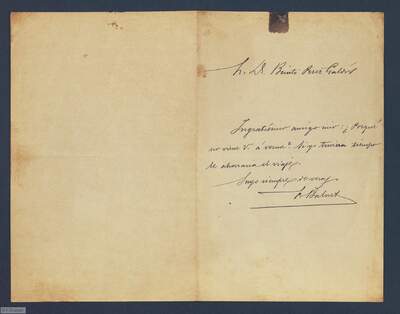 Sr. D. Benito Perez Galdós
Ingratísimo amigo mio: ¿Porqué
no viene V. á verme? Si yo tuviera tiempo
le ahorraria el viaje.
Suyo siempre de veras